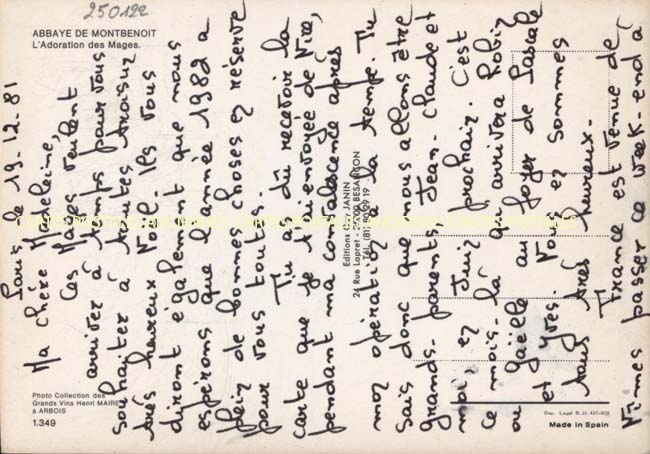 250122
ABBAYE DE MONTBENOIT
L'Adoration des Mages.
Paris le 19.12.81
Ma chère Madeleine,
Ces Mages veulent
arriver à temps pour vous
souhaiter à toutes trois un
très heureux Noël. Ils vous
diront également que nous
espérons que l'année 1982 a
plein de bonnes choses en réserve
pour vous toutes.
Tu as dû recevoir la
carte que je t'ai envoyée de Nice,
pendant ma convalescence après
mon opération à la tempe. Tu
sais donc que nous allons être
grands-parents, Jean-Claude et
moi, en Juin prochain. C'est
ce mois-là qu'arrivera Robin
ou Gaëlle au foyer de Pascale
et Yves. Nous en sommes
tous très heureux.
France est venue de
Nîmes passer ce week-end à
Editions Guy JANIN
24 Rue Lapret - 25000 BESANÇON
Tél. (81)
Photo Collection des
Grands Vins Henri MAIRE
à ARBOIS
1.349
Dep. Legal B. 21.427-XIX
Made in Spain